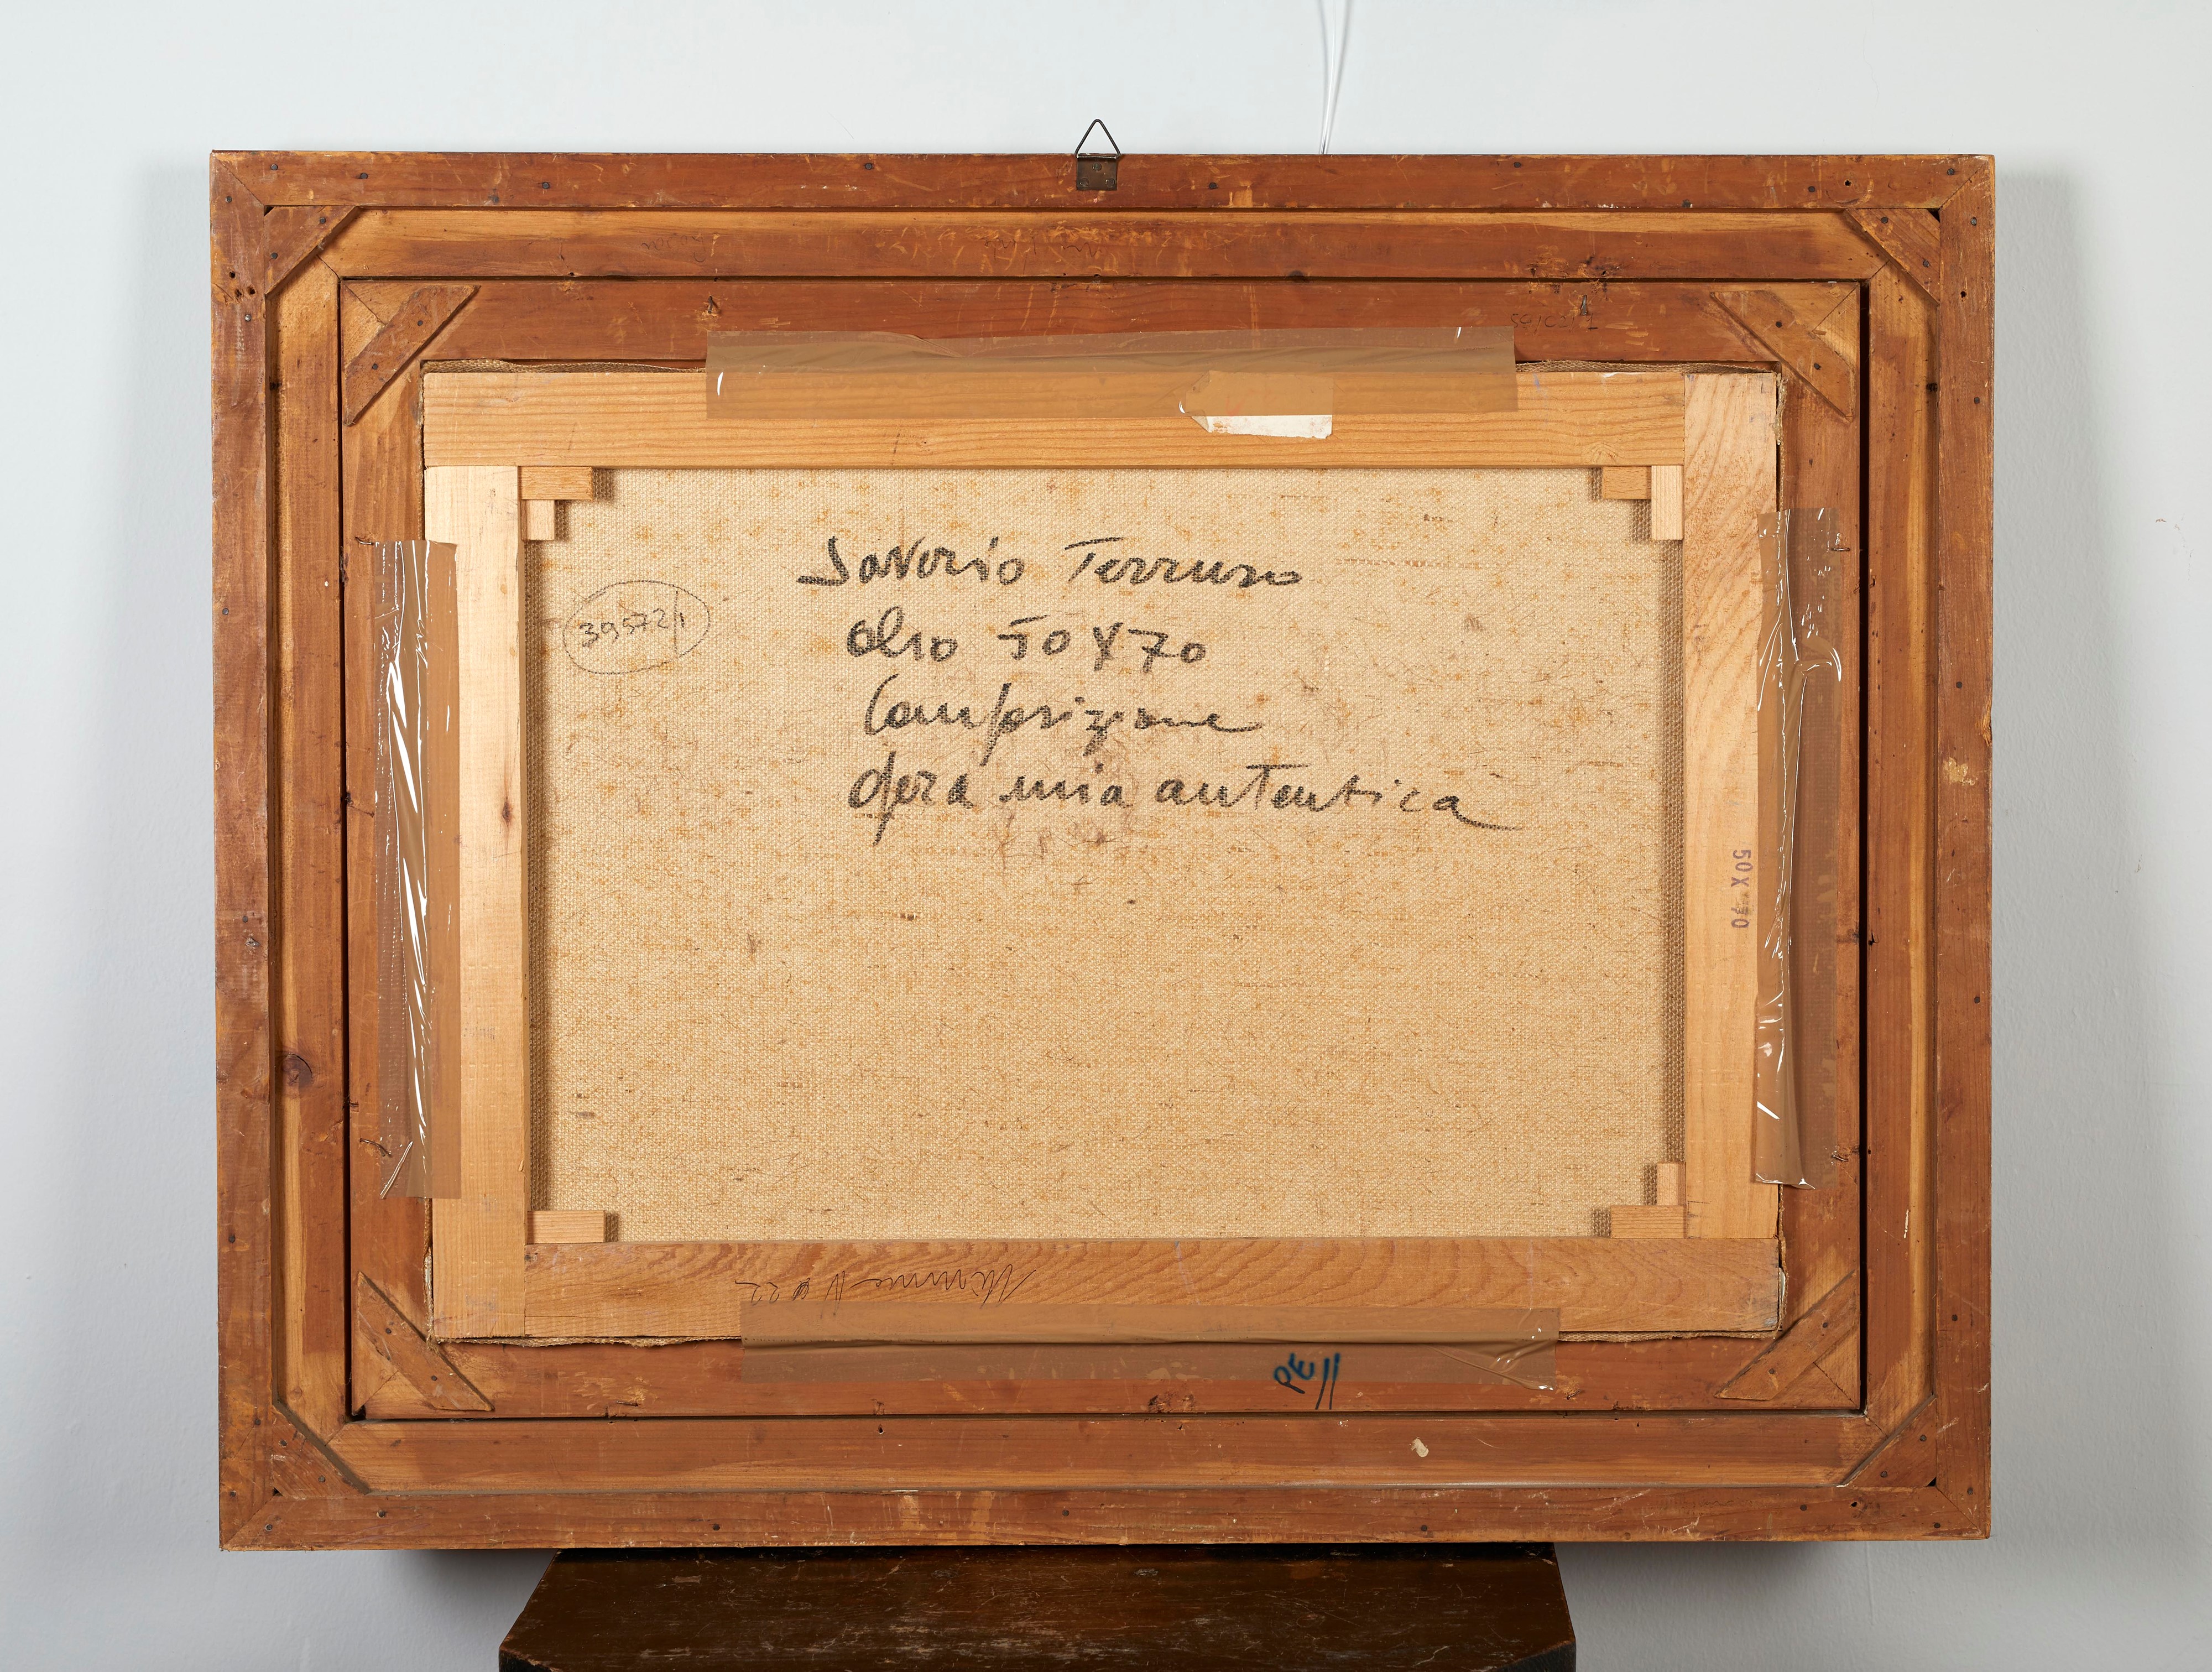 Saverio Terruso
olio 50x70
Composizione
opera mia autentica
39572/1
50 X 70
PE11